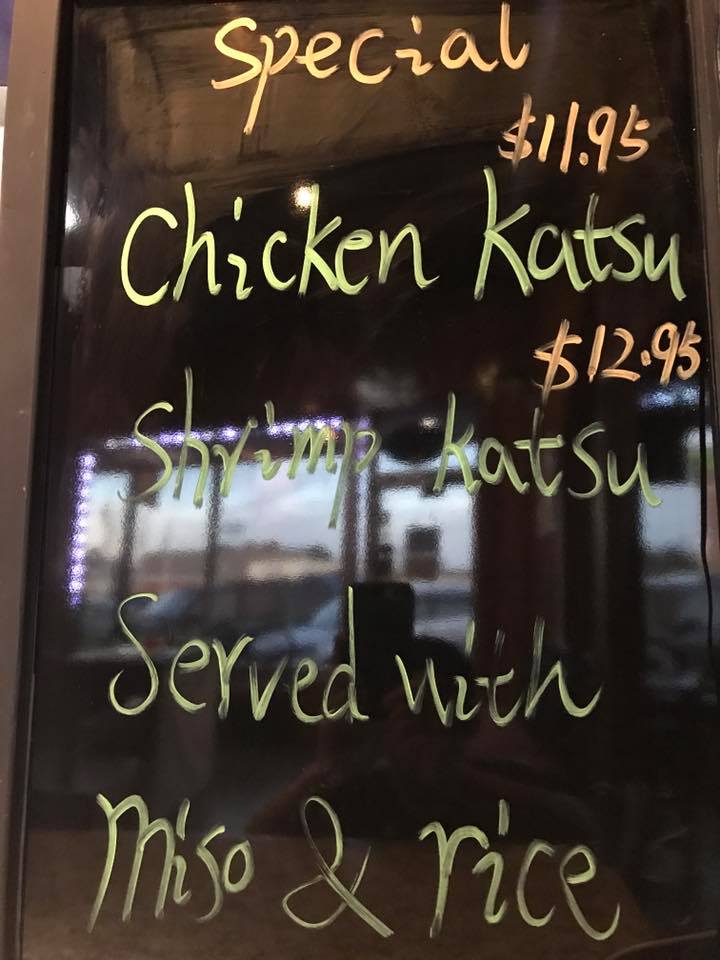 Special
$11.95
Chicken Katsu
$12.95
Shrimp Katsu
Served with
Miso & rice